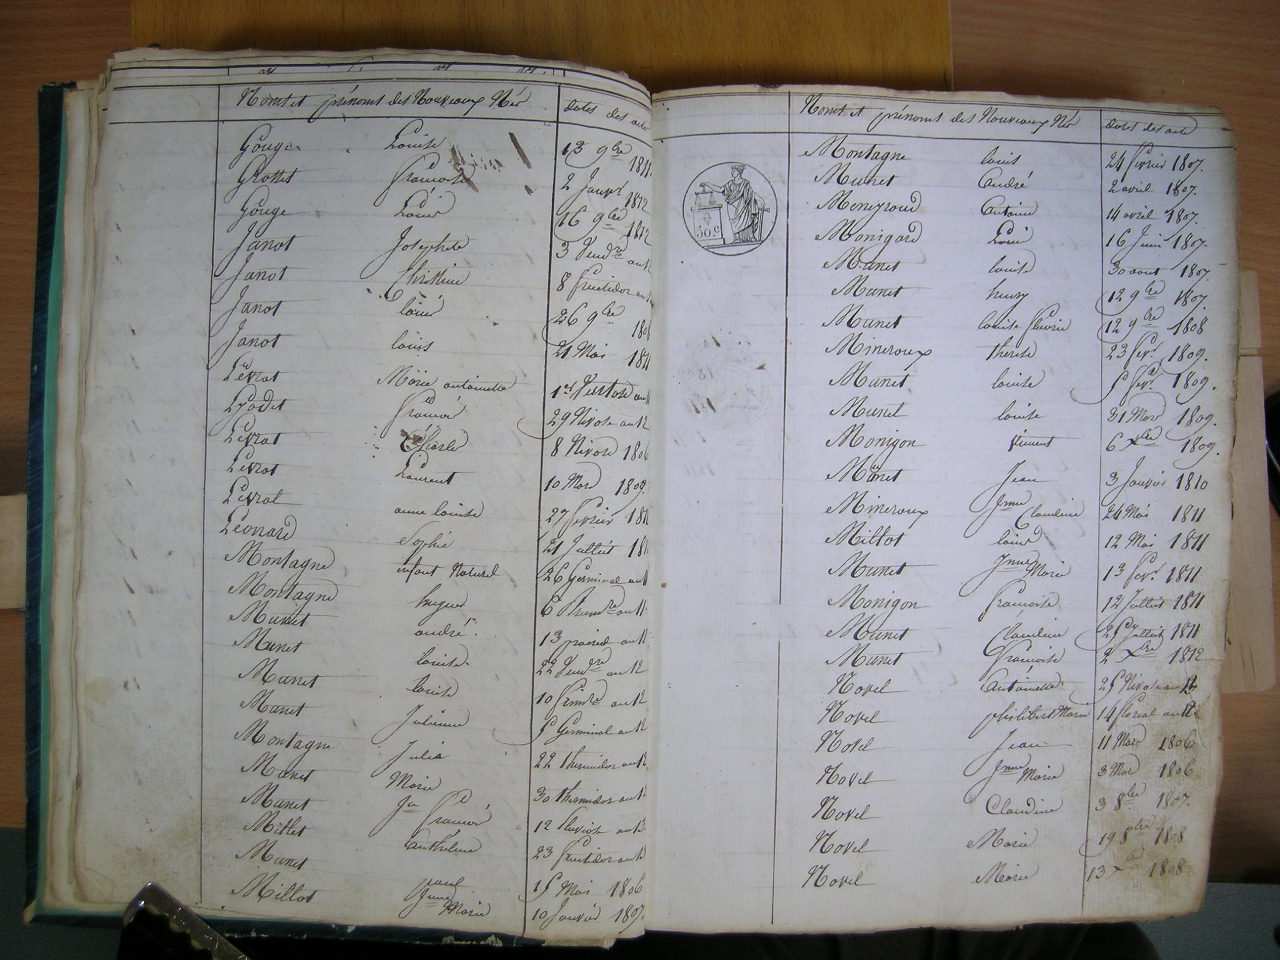 Noms et prénoms des Nouveaux Nés dates des acte
Gouge Louise 13 9bre 1811
Grottet françoise 2 Janvr 1812
Gouge Louis 16 9bre 1812
Janot Josephte 3 Vendre an 12
Janot Christine 8 fructidor an
Janot Louis 26 9bre 180
Janot louis 21 Mai 1811
Levrat Marie antoinette 1er Ventose an
françois 29 Nivose an 12
Levrat Charle 8 Nivose 1806
Levrat Laurent 10 Mars 1809
Levrat anne louise 27 fevrier 181
Léonard Sophie 21 Juillet 181
Montagne enfant Naturel 26 Germinal an
Montagne hugues 6 an 11
Munet andré 13 prairial an
Munet louise 22 Vendre an 12
Munet louise 10 frimre an 12
Munet Julienne 5 Germinal an 12
Montagne Julia 22 thermidor an
Munet Marie 30 thermidor an
Munet Jn françois 12 pluviose an 13
Millet anthelme 23 fructidor an
Munet paul 15 Mai 1806
Millot Jnne Marie 10 Janvier 1807
Noms et prénoms des Nouveaux Nés dates des acte
Montagne louis 24 fevrier 1807.
Munet André 2 avril 1807.
Moneyroud Antoine 14 avril 1807.
Monigard Louis 16 Juin 1807.
Munet louise 30 aout 1807
Munet henry 12 9bre 1807.
Munet louise fleurie 12 9bre 1808
Mineroux therese 23 fevr 1809.
Munet louise 5 1809.
Munet louise 31 Mars 1809.
Monigon clement 6 Xbre 1809.
Munet Jean 3 Janvier 1810
Mineroux Jnne Claudine 24 Mai 1811
Millot louis 12 Mai 1811
Munet Jnne Marie 13 fevr 1811
Monigon françoise 12 Juillet 1811
Munet Claudine 25 Juillet 1811
Munet françoise 2 Xbre 1812
Novel Antoinette 25 Nivose an 12
Novel philibert Marie 14 floreal an 12
Novel Jean 11 Mars 1806
Novel Jnne Marie 3 Mars 1806
Novel Claudine 3 8bre 1807.
Novel Marie 19 8bre 1808
Novel Marie 13 Xbre 1808
50.c